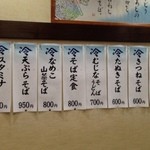 冷きつねそば
600円
冷たぬきそば
600円
冷むじなそば
うどん
700円
冷そば定食
800円
冷なめこ
山菜そば
800円
冷天ぷらそば
950円
冷スタミナ
0円